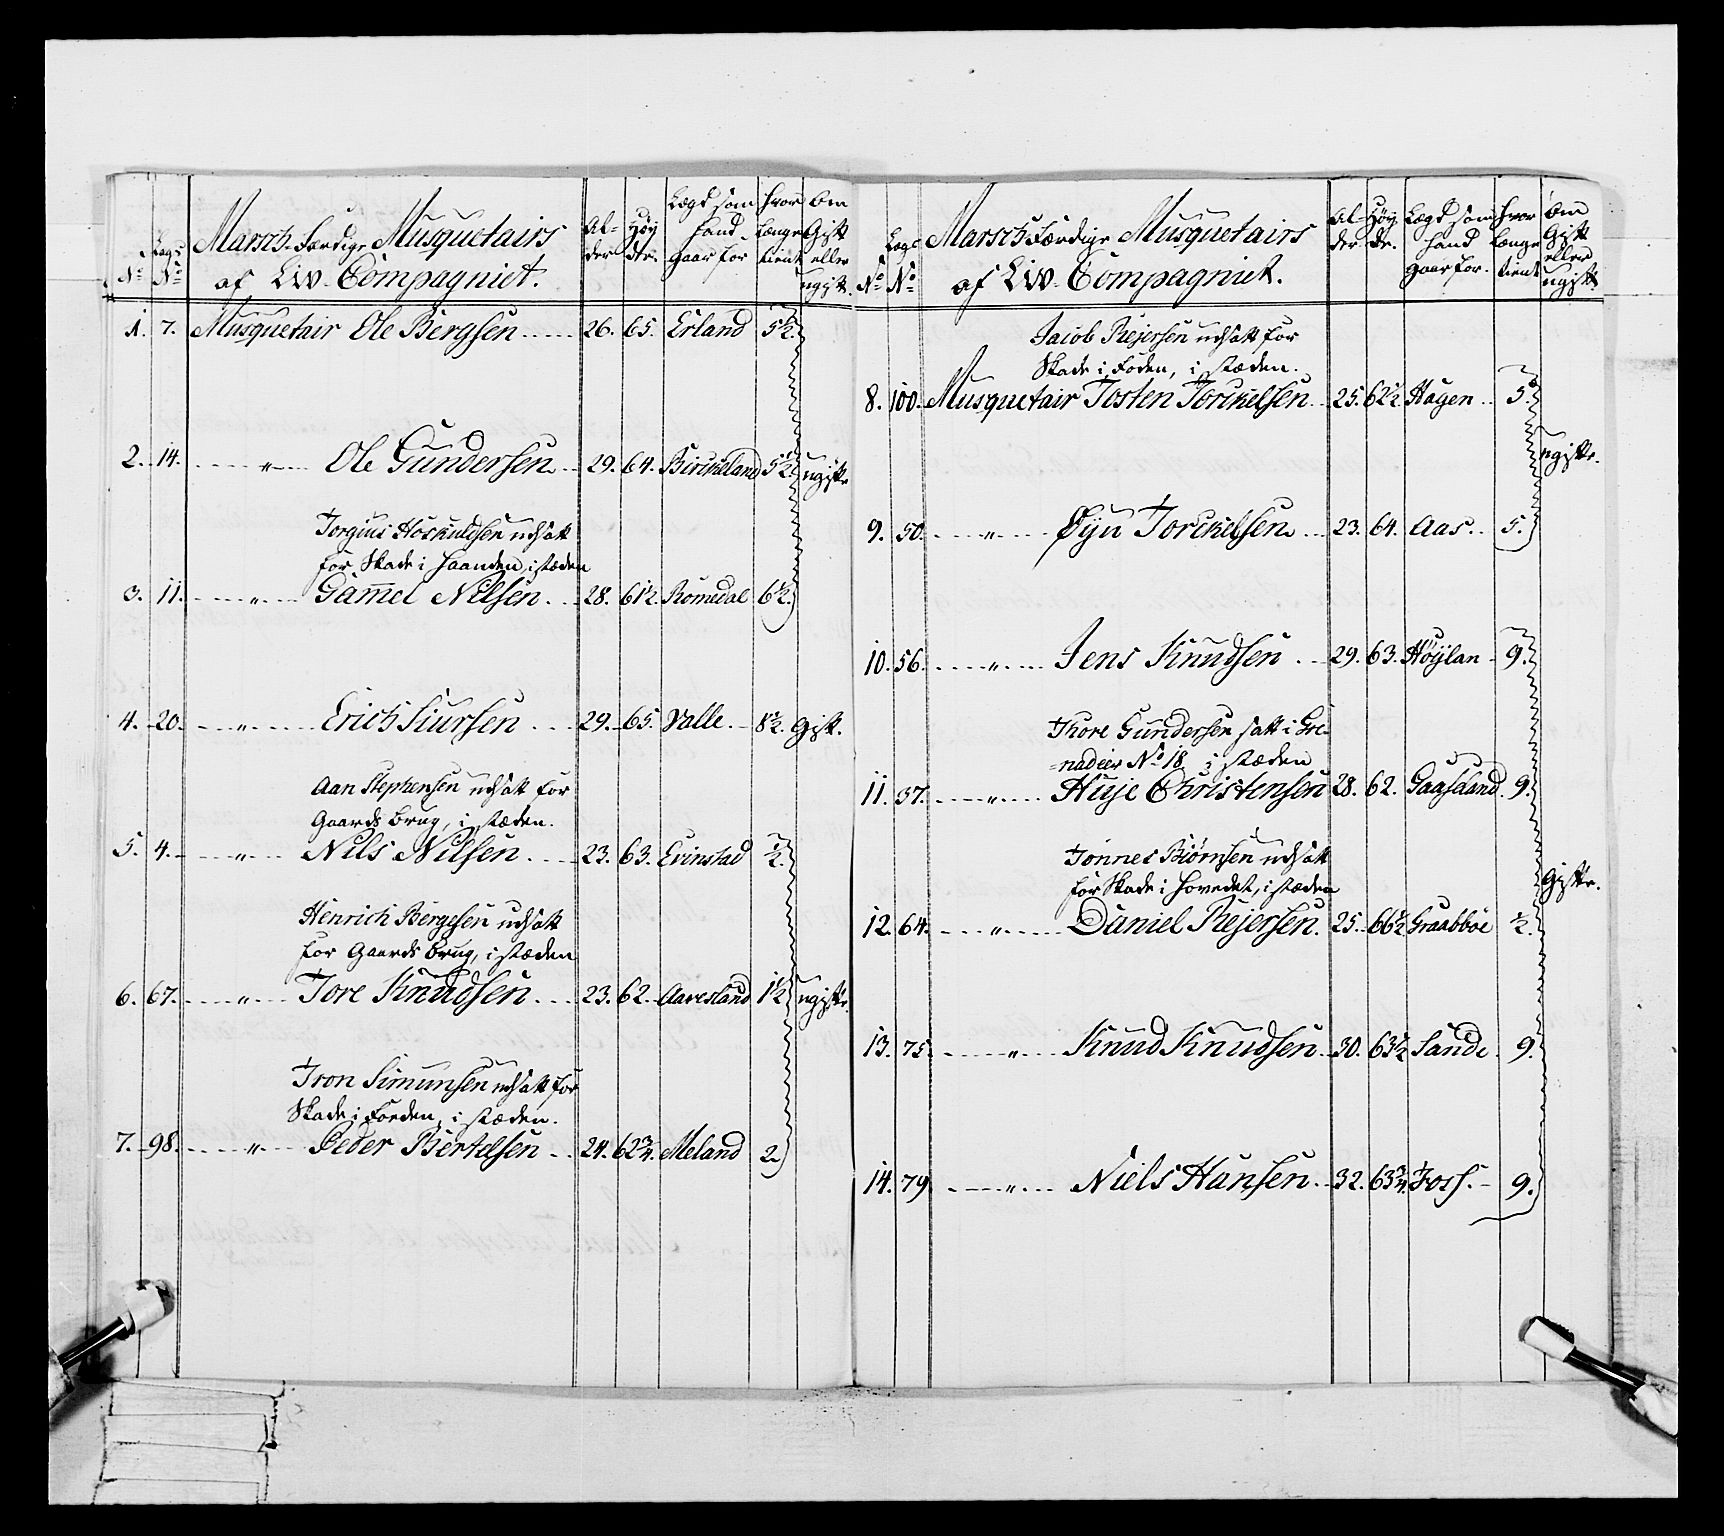 Marsch-Færdige Musquetairs
af Liv-Compagniet.
No Lægs No
Al-der Høy-de. Lægd som hand gaar for hvor længe tient Om Gift eller ugift.
1. 7. Musquetair Ole Bergsen 26. 65. Erland 5½.
2. 14. " Ole Gundersen 29. 64. Birckeland 5½. ugifte
Torgius Hoskuldsen udsatt
for Skade i haanden, i stæden
3. 11. " Gamel Nilsen 28. 61½ Romedal 6½.
4. 20. " Erich Siursen 29. 65. Valle 8½. Gift.
Aan Stephensen udsatt for
Gaards brug, i stæden.
5. 4. " Nils Nilsen 23. 63. Evinstad ½.
Henrich Bergesen udsatt
for Gaards brug, i stæden
6. 67. " Tore Knudsen 23. 62. Aaresland 1½ ugifte.
Tron Simunsen udsatt for
Skade i Foeden, i stæden.
7. 98. " Peder Bertelsen 24. 62¾. Meland 2.
Marsch Færdige Musquetairs
af Liv-Compagniet.
No Lægs No
Al-der Høy-de. Lægd som hand gaar for. hvor længe tient Om Gift eller ugift
Jacob Rejersen udsatt for
Skade i Foden, i stæden.
8. 100. Musquetair Tosten Torckelsen 25. 62½ Hagen 5.
ugifte.
9. 50. " Øyn Torckelsen 23. 64. Aas 5.
10. 56. " Jens Knudsen 29. 63. Høylan 9.
Thore Gundersen satt i Gre-
nadeer No 18 i stæden
11. 37. " Huje Christensen 28. 62. Gaaseland 9.
Tønnes Biørnsen udsatt
for Skade i hovedet, i stæden
Gifte.
12. 64. " Daniel Rejersen. 25. 66½ Graabboe ½.
13. 75. " Knud Knudsen 30. 63½ Sande 9.
14. 79 " Niels Hansen 32. 63¾. Foss. 9.